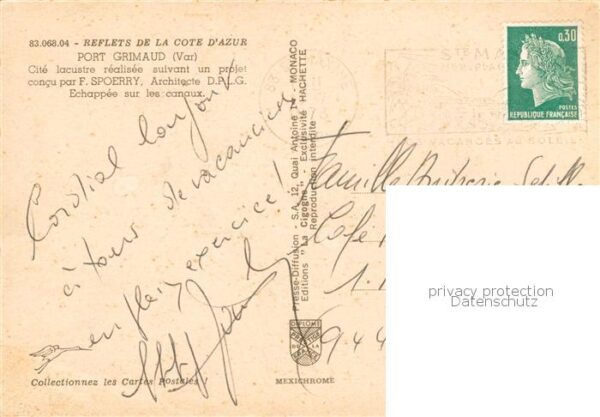 83.068.04 - REFLETS DE LA COTE D'AZUR
PORT GRIMAUD (Var)
Cité lacustre réalisée suivant un projet
conçu par F. SPOERRY, Architecte D.P.L.G.
Echappée sur les canaux.
Cordial bonjour
à tous de vacanciers
en plein exercice !
Collectionnez les Cartes Postales !
Presse-Diffusion - S.A. 12, Quai Antoine 1er - MONACO
Editions "La Cigogne" - Exclusivité HACHETTE
Reproduction interdite
MEXICHROME
0,30
POSTES
REPUBLIQUE FRANÇAISE
STE MA
VACANCES AU SOLEIL
Famille
Café
1.
944
privacy protection
Datenschutz